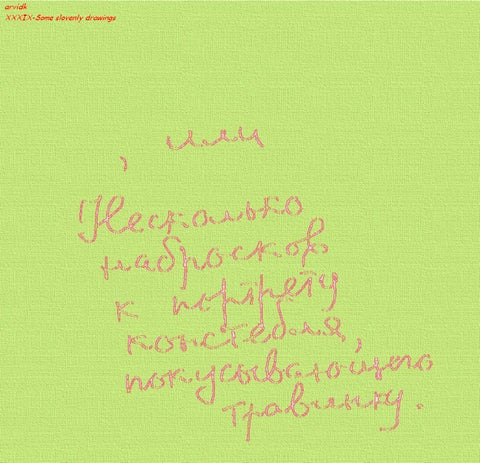 arvidk
XXXIX-Some slovenly drawings
, или
Несколько
набросков
к портрету
констебля,
покусывающего
травинку.